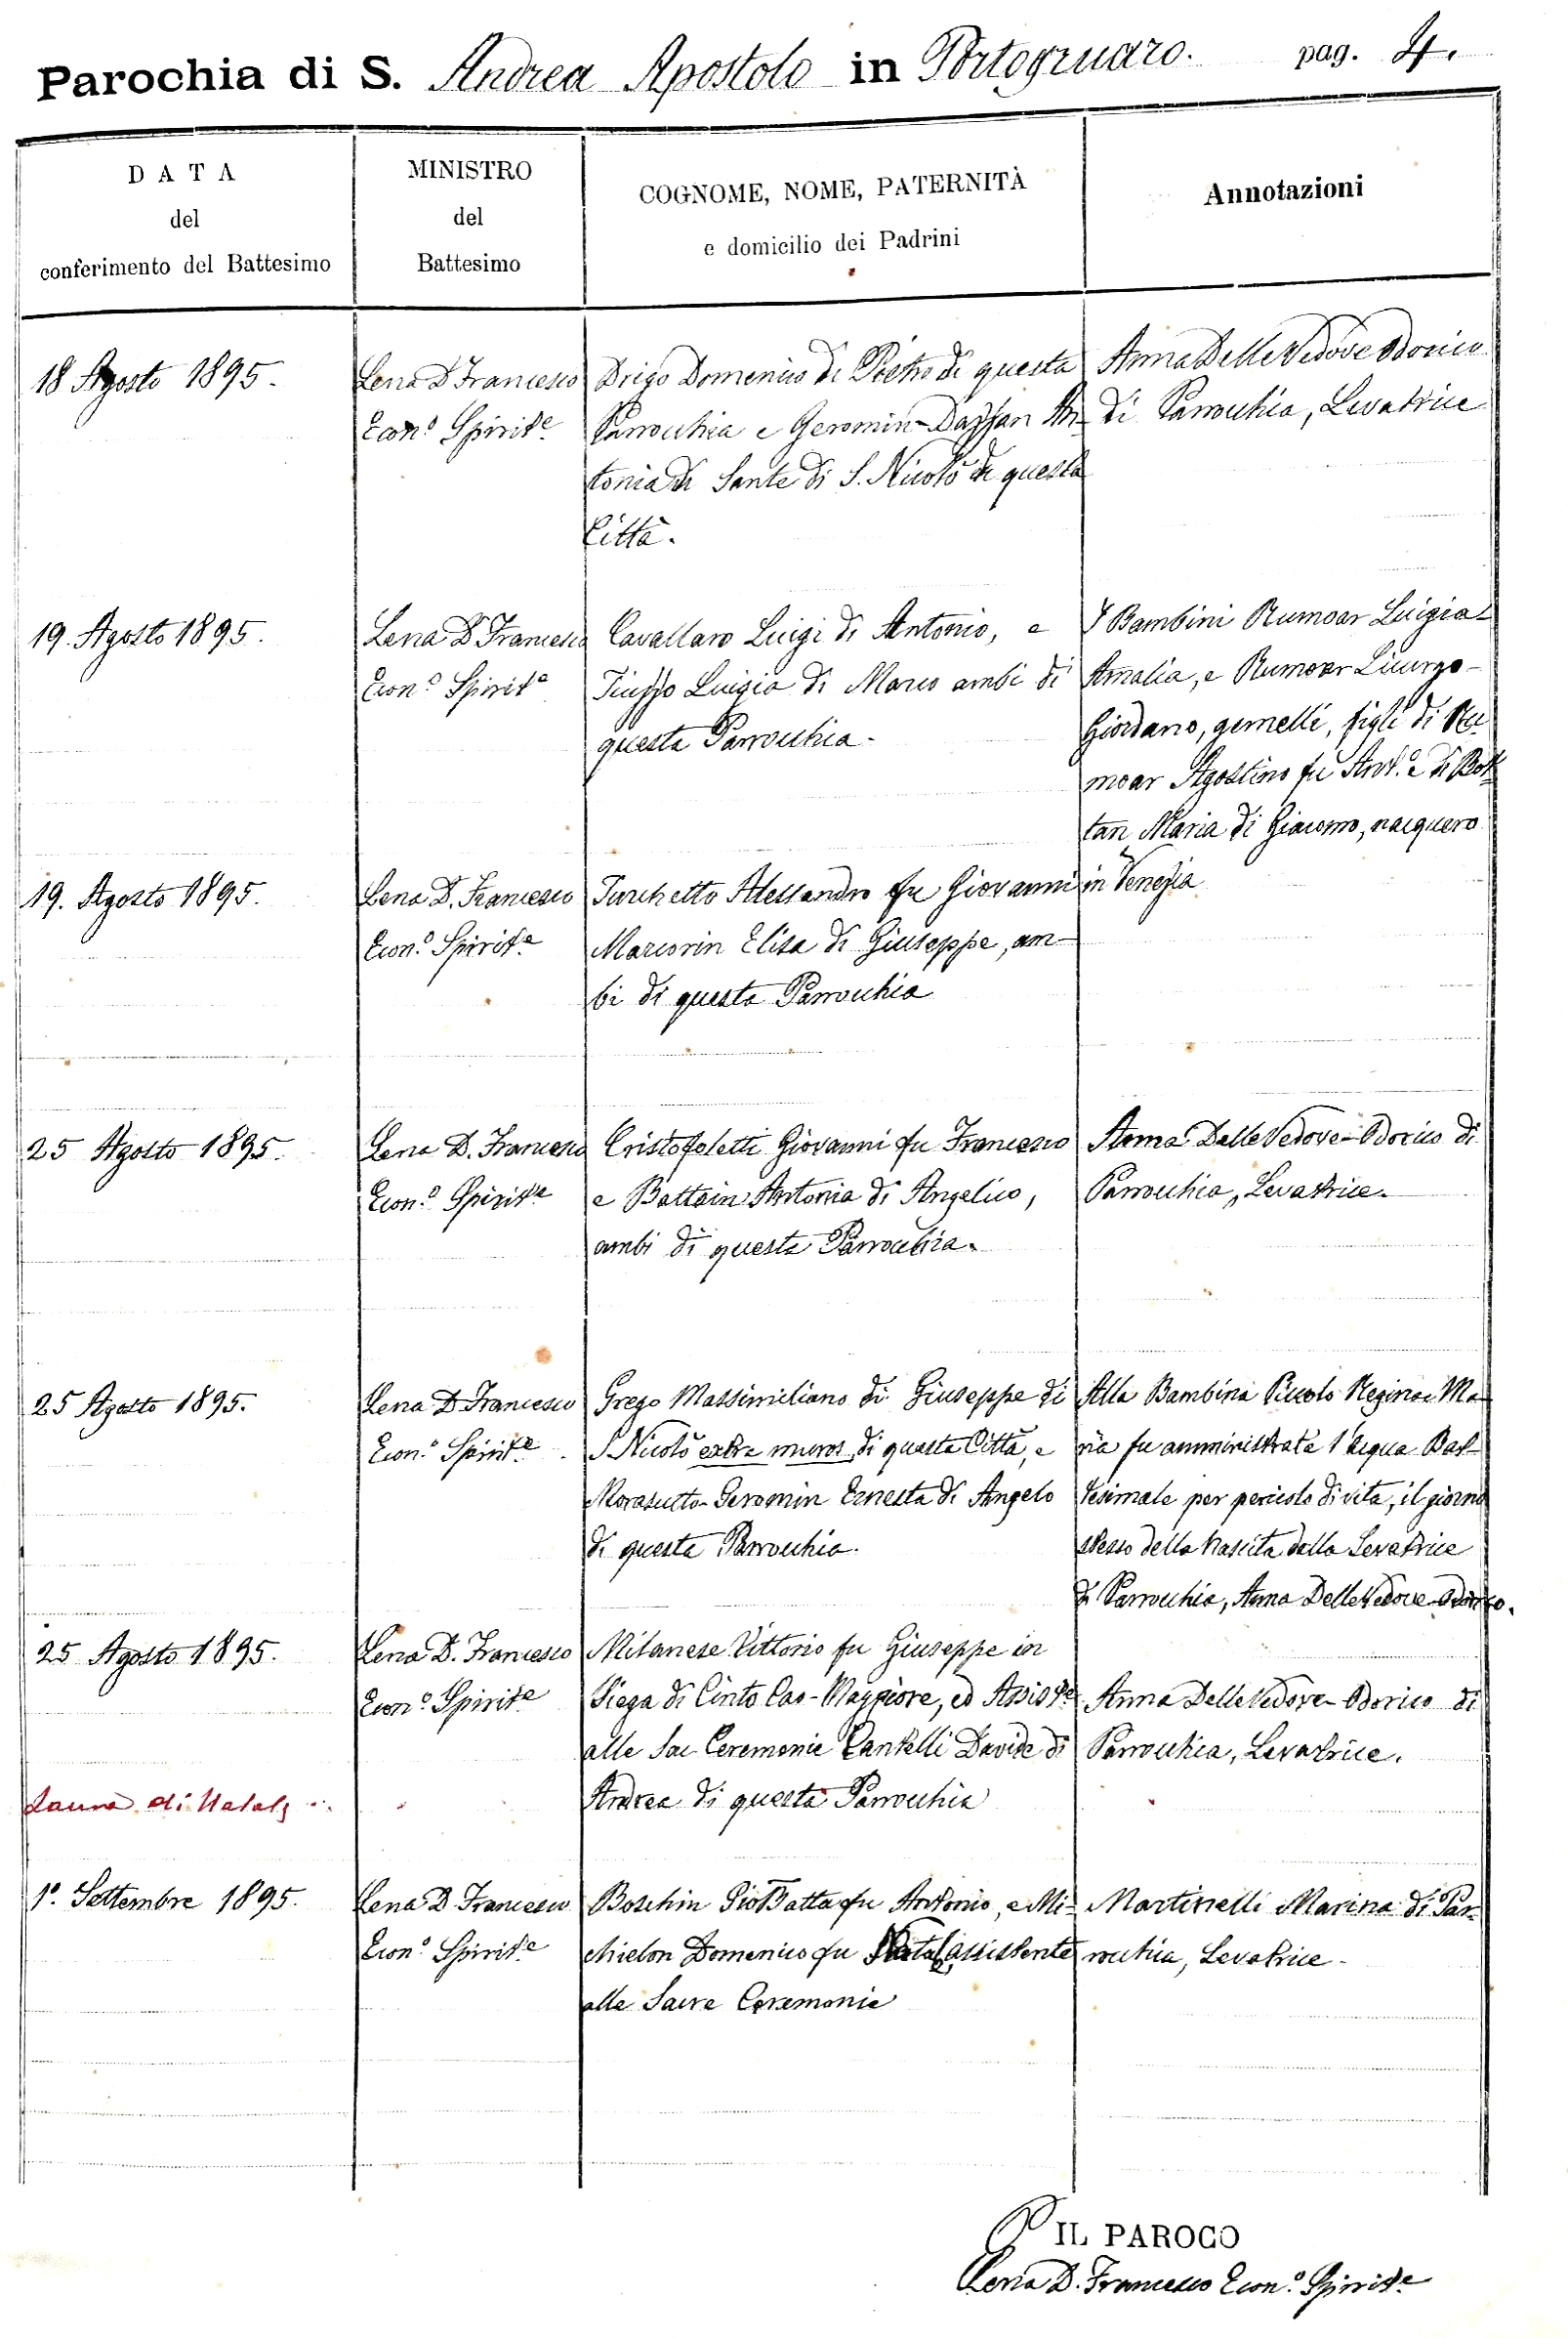 Parochia di S. Andrea Apostolo in Portogruaro. pag. 4.
DATA
del
conferimento del Battesimo
MINISTRO
del
Battesimo
COGNOME, NOME, PATERNITÀ
e domicilio dei Padrini
Annotazioni
18 Agosto 1895.
Lena D Francesco
Econ.º Spirit.e
Drigo Domenico di Pietro di questa
Parrocchia e Geromin-Dazzan An-
tonia di Sante di S. Nicolò di questa
Città.
Anna Delle Vedove Odorico
di Parrocchia, Levatrice
19. Agosto 1895.
Lena D Francesco
Econ.º Spirit.e
Cavallaro Luigi di Antonio, e
Luigia di Marco ambi di
questa Parrocchia.
I Bambini Rumoar Luigia-
Amalia, e Rumoar Licurgo-
Giordano, gemelli, figli di Ru
moar Agostino fu Ant.º e di Bot
tan Maria di Giacomo, nacquero
in Venezia
19. Agosto 1895.
Lena D. Francesco
Econ.º Spirit.e
Turchetto Alessandro fu Giovanni
Marcorin Elisa di Giuseppe, am-
bi di questa Parrocchia
25 Agosto 1895.
Lena D. Francesco
Econ.º Spirit.e
Cristofoletti Giovanni fu Francesco
e Battain Antonia di Angelico,
ambi di questa Parrocchia.
Anna Delle Vedove-Odorico di
Parrocchia, Levatrice.
25 Agosto 1895.
Lena D Francesco
Econ.º Spirit.e
Grego Massimiliano di Giuseppe di
S Nicolò extra muros di questa Città, e
Morasutto-Geromin Ernesta di Angelo
di questa Parrocchia.
Alla Bambina Piccolo Regina-Ma
ria fu amministrata l'acqua Bat-
tesimale per pericolo di vita, il giorno
stesso della nascita dalla Levatrice
di Parrocchia, Anna Delle Vedove-Odorico.
25 Agosto 1895.
Lena D. Francesco
Econ.º Spirit.e
Milanese Vittorio fu Giuseppe in
Siega di Cinto Cao-Maggiore, ed Assist.e
alle Sac Ceremonie Zantelli Davide di
Andrea di questa Parrocchia
Anna Delle Vedove-Odorico di
Parrocchia, Levatrice.
1º. Settembre 1895.
Lena D Francesco
Econ.º Spirit.e
Boschin Gio Batta fu Antonio, e Mi-
chielon Domenico fu Natale assistente
alle Sacre Ceremonie
Martinelli Marina di Par-
rocchia, Levatrice.
IL PAROCO
Lena D. Francesco Econ.º Spirit.e